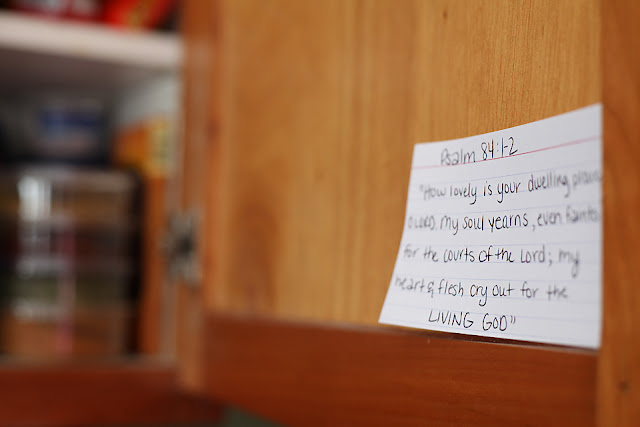 Psalm 84:1-2
"How lovely is your dwelling place,
O LORD. My soul yearns, even faints
for the courts of the Lord; my
heart & flesh cry out for the
LIVING GOD"